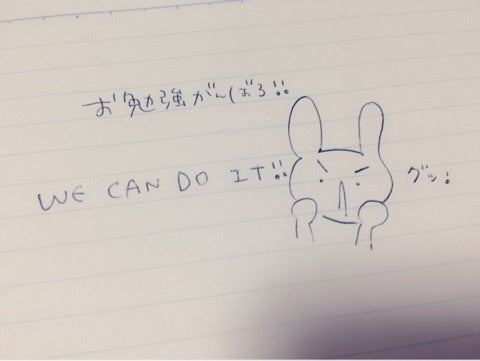 お勉強がんばろ!!
WE CAN DO IT!!
グッ!